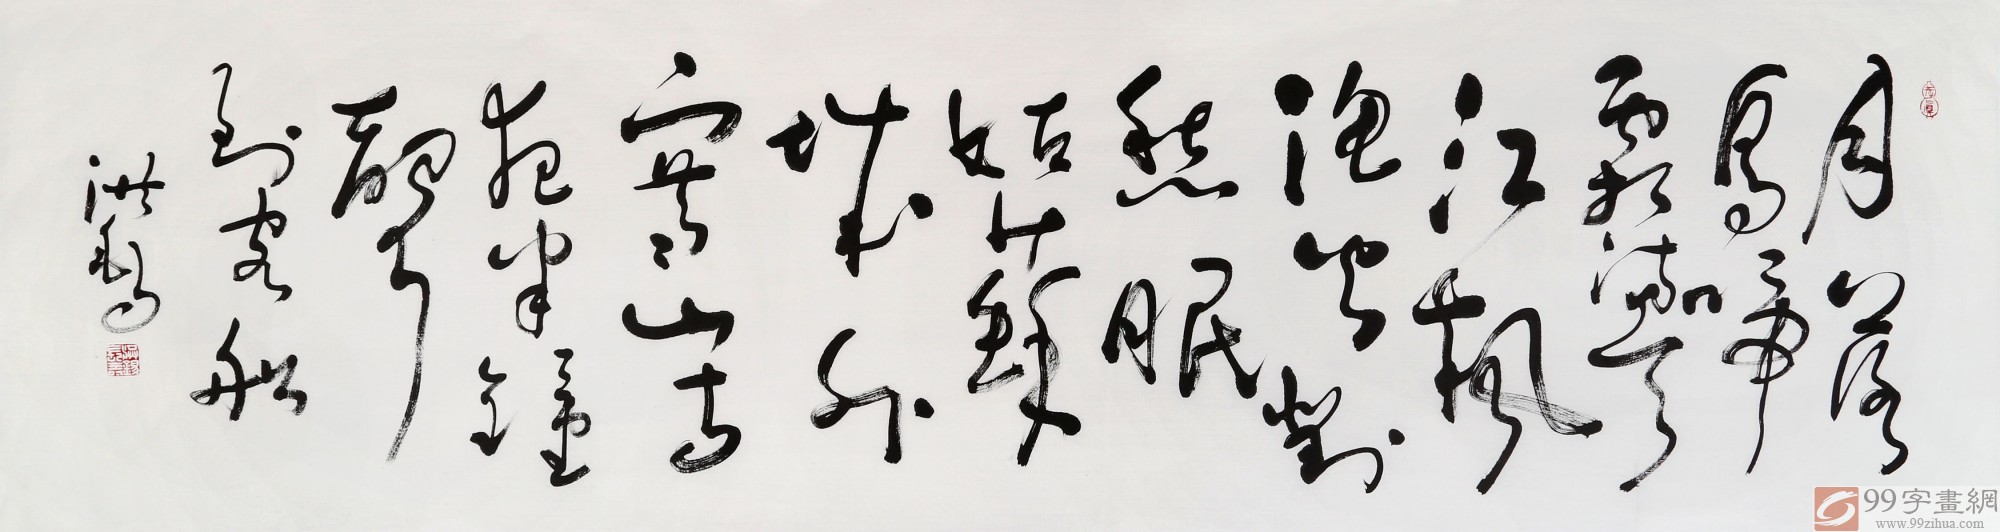 月落
烏啼
霜滿天
江楓
漁火對
愁眠
姑蘇
城外
寒山寺
夜半鐘
聲
到客船
洪
99字畫網
www.99zihua.com